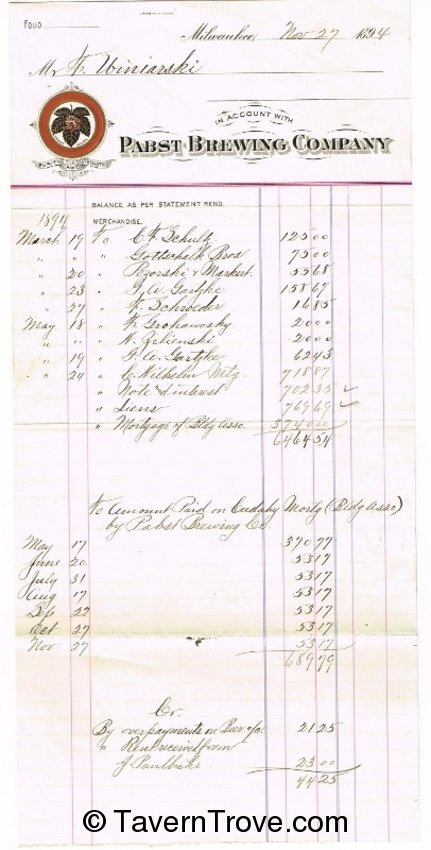 FOLIO
Milwaukee, Nov 27 1894
Mr F. Winiarski
IN ACCOUNT WITH
PABST BREWING COMPANY
BALANCE AS PER STATEMENT REND.
1894 MERCHANDISE.
March 19 To C. F. Schultz 125 00
" " " Gottschalk Bros 75 00
" 20 " & Markert 55 68
" 23 " F. A. Gartzke 158 67
" 27 " F. Schroeder 16 85
May 18 " F. Grohowosky 20 00
" " " N. Zilienski 20 00
" 19 " F. A. Gartzke 62 43
" 24 " C. Wilhelm 718 87
" Note & interest 702 35 ✓
" Liens 769 69 ✓
" Mortgage of Bldg Asso. 3740 00
6464 54
To Amount Paid on Cudahy Mortg (Bldg Asso)
by Pabst Brewing Co.
May 17 370 77
June 20 53 17
July 31 53 17
Aug 17 53 17
Sep 22 53 17
Oct 27 53 17
Nov. 27 53 17
689 79
Cr.
By overpayments on Beer a/c. 21 25
" Rent received from
J Paulbicke. 23 00
44 25
© TavernTrove.com